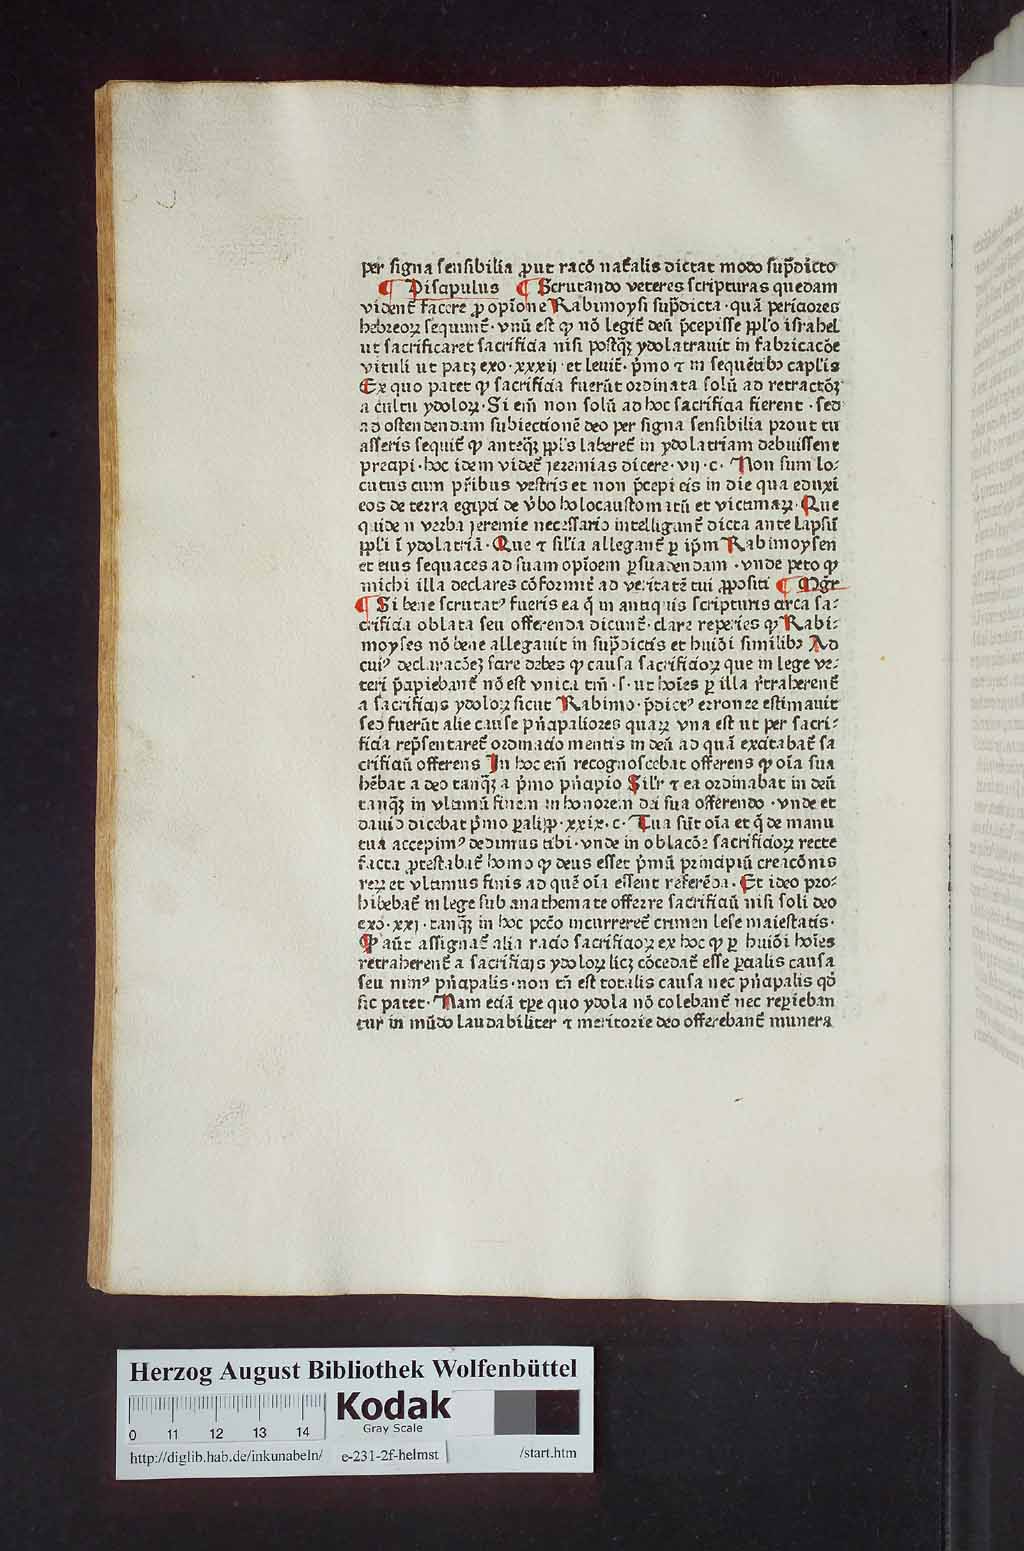 per signa sensibilia ꝓut racō nať̄alis dictat modo sup̄dicto
¶ Discipulus ¶ Scrutando veteres scripturas quedam
videnť facere ꝓ opīone Rabimoysi sup̄dicta · quā periciores
hebreoꝝ sequunť · vnū est ꝙ nō legiť deū p̄cepisse ppl'o israhel
ut sacrificaret sacrificia nisi postqꝫ ydolatrauit in fabricacōe
vituli ut patꝫ exo · xxxij · et leuiť · p̄mo ⁊ in sequētibꝫ capl'is
Ex quo patet ꝙ sacrificia fuerūt ordinata solū ad retractōꝫ
a cultu ydoloꝝ · Si em̄ non solū ad hoc sacrificia fierent · sed
ad ostendendam subiectionē deo per signa sensibilia prout tu
asseris sequiť ꝙ anteqꝫ ppl's laberet in ydolatriam debuissent
precipi · hoc idem videť jeremias dicere · vij · c · Non sum lo⸗
cutus cum pr̄ibus vestris et non p̄cepi eis in die qua eduxi
eos de terra egipti de v̄bo holocaustomatū et victimaꝝ · Que
quiden verba jeremie necessario intelliganť dicta ante lapsū
ppl'i ī ydolatriā · Que ⁊ sil'ia alleganť ꝑ ip̄m Rabimoysen
et eius sequaces ad suam opīoem ꝑsuadendam · vnde peto ꝙ
michi illa declares cōformiť ad veritatē tui ꝓpositi ¶ Mgr̄
¶ Si bene scrutatꝰ fueris ea q̄ in antiquis scripturis circa sa⸗
crificia oblata seu offerenda dicunť · clare reperies ꝙ Rabi⸗
moyses nō bene allegauit in sup̄dictis et huiōi similibꝫ Ad
cuiꝰ declaracōeꝫ scire debes ꝙ causa sacrificioꝝ que in lege ve⸗
teri p̄cipiebanť nō est vnica tm̄ · s · ut hoīes ꝑ illa r̄traherenť
a sacrificijs ydoloꝝ sicut Rabimo · p̄dictꝰ erronee estimauit
sed fuerūt alie cause pn̄cipaliores quaꝝ vna est ut per sacri⸗
ficia rep̄sentareť ordinacio mentis in deū ad quā excitabať sa
crificiū offerens In hoc em̄ recognoscebat offerens ꝙ oīa sua
hēbat a deo tanqꝫ a p̄mo pn̄cipio Sil'r ⁊ ea ordinabat in deū
tanqꝫ in vltimū finem in honorem dei sua offerendo · vnde et
dauid dicebat p̄mo ꝑaliꝑꝑ · xxix · c · Tua sūt oīa et q̄ de manu
tua accepimꝰ dedimus tibi · vnde in oblacōe sacrificioꝝ recte
facta ꝓtestabať homo ꝙ deus esset p̄mū principiū creacōnis
reꝝ et vltimus finis ad quē oīa essent referēda · Et ideo pro⸗
hibebať in lege sub anathemate offerre sacrificiū nisi soli deo
exo · xxij · tanqꝫ in hoc pccō incurrereť crimen lese maiestatis ·
Ꝙ aūt assignať alia racio sacrificioꝝ ex hoc ꝙ ꝑ huiōi hoīes
retraherenť a sacrificijs ydoloꝝ licꝫ cōcedať esse ꝑcialis causa
seu minꝰ pn̄cipalis · non tn̄ est totalis causa nec pn̄cipalis qd̄
sic patet · Nam eciā tꝑe quo ydola nō colebanť nec reꝑieban
tur in mūdo laudabiliter ⁊ meritorie deo offerebanť munera
Herzog August Bibliothek Wolfenbüttel
Kodak
Gray Scale
0 11 12 13 14
http://diglib.hab.de/inkunabeln/ e-231-2f-helmst /start.htm